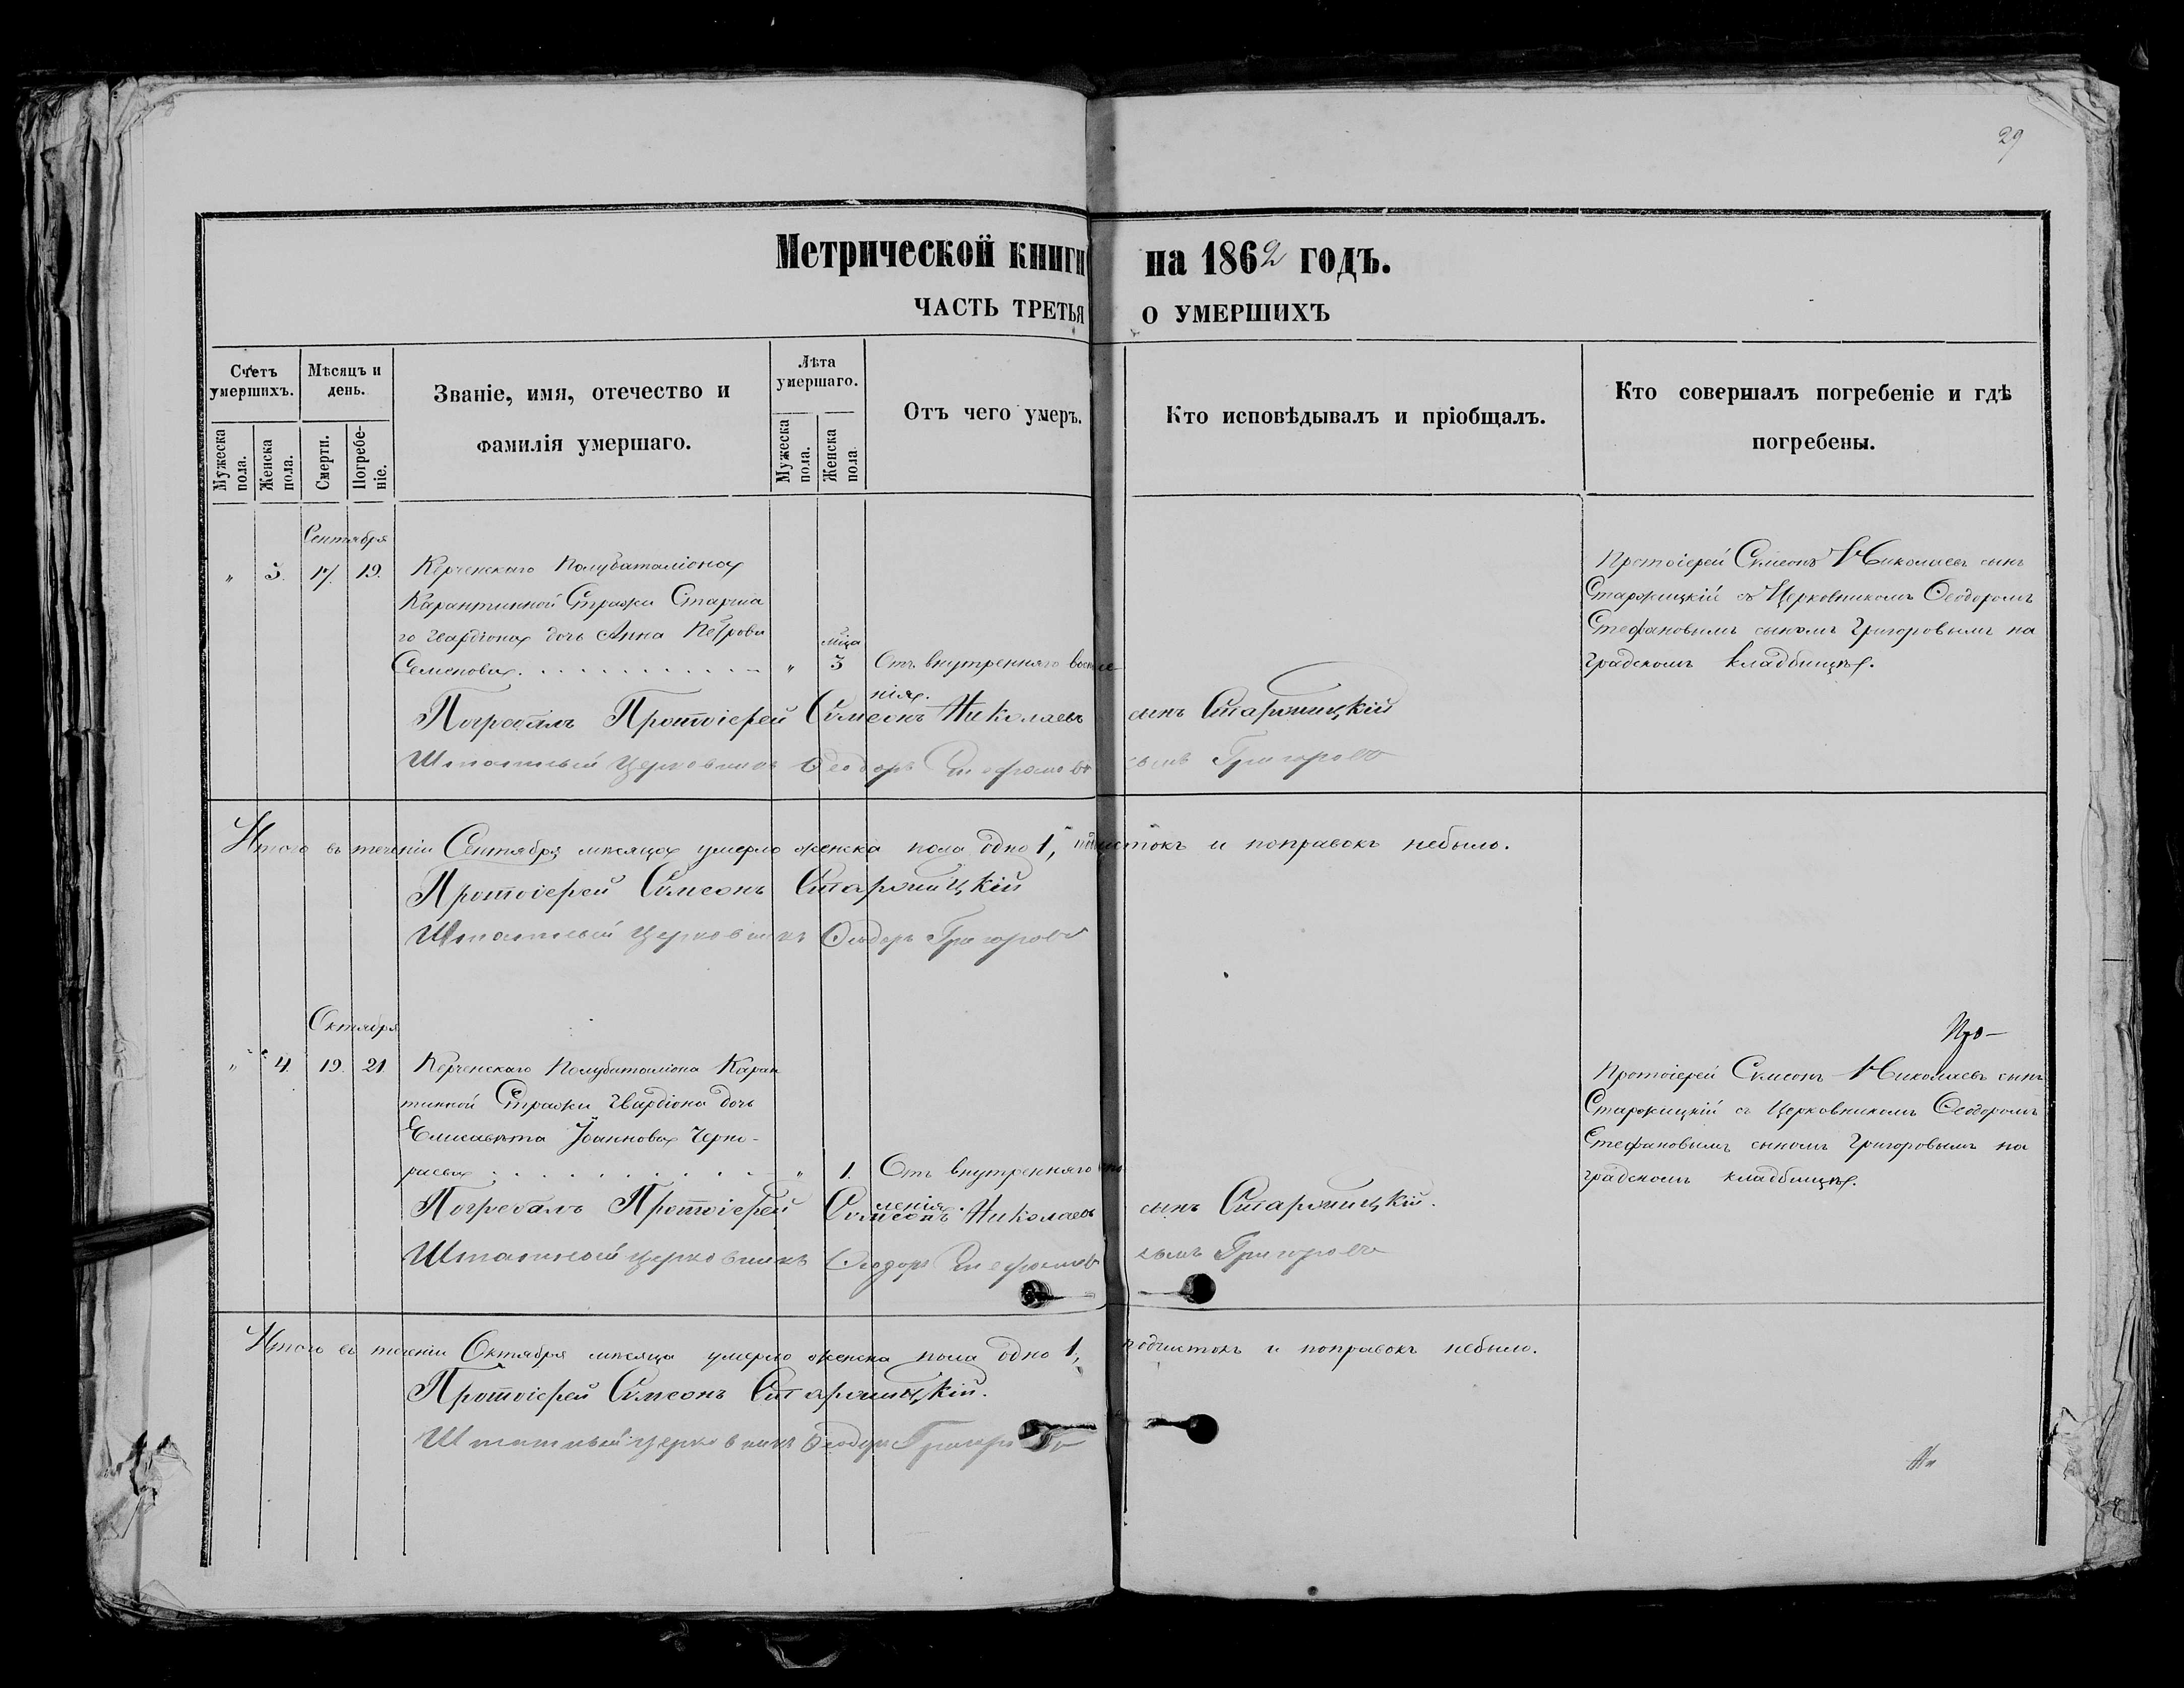 29
Метрической книги на 1862 годъ.
ЧАСТЬ ТРЕТЬЯ О УМЕРШИХЪ
Счетъ умершихъ.
Мужеска пола.
Женска пола.
Мѣсяцъ и день.
Смерти.
Погребе-
ніе.
Званіе, имя, отечество и
фамилія умершаго.
Лѣта умершаго.
Мужеска пола.
Женска пола.
Отъ чего умеръ.
Кто исповѣдывалъ и пріобщалъ.
Кто совершалъ погребеніе и гдѣ
погребены.
Сентября
" 3. 17. 19. Керченскаго Полубаталіона
Карантинной Стражи Старша
го Гвардіона дочь Анна Петрова
Семенова. " мѣца 3 Отъ внутренняго воспале
нія.
Протоіерей Симеонъ Николаевъ сынъ
Старжицкій съ Церковникомъ Ѳеодоромъ
Стефановымъ сыномъ Григоровымъ на
градскомъ кладбищѣ.
Погребалъ Протоіерей Симеонъ Николаевъ сынъ Старжицкій
Штатный Церковникъ Ѳеодоръ Стефановъ сынъ Григоровъ
Итого въ теченіи Сентября мѣсяца умерло женска пола одно 1, подчистокъ и поправокъ небыло.
Протоіерей Симеонъ Старжицкій
Штатный Церковникъ Ѳеодоръ Григоровъ
Октября
" 4. 19. 21 Керченскаго Полубаталіона Каран
тинной Стражи Гвардіона дочь
Елисавета Іоаннова Черно-
раева " 1. Отъ внутренняго воспа
ленія.
Про-
Протоіерей Симеонъ Николаевъ сынъ
Старжицкій съ Церковникомъ Ѳеодоромъ
Стефановымъ сыномъ Григоровымъ на
градскомъ кладбищѣ.
Погребалъ Протоіерей Симеонъ Николаевъ сынъ Старжицкій.
Штатный Церковникъ Ѳеодоръ Стефановъ сынъ Григоровъ
Итого въ теченіи Октября мѣсяца умерло женска пола одно 1, подчистокъ и поправокъ небыло.
Протоіерей Симеонъ Старжицкій.
Штатный Церковникъ Ѳеодоръ Григоровъ